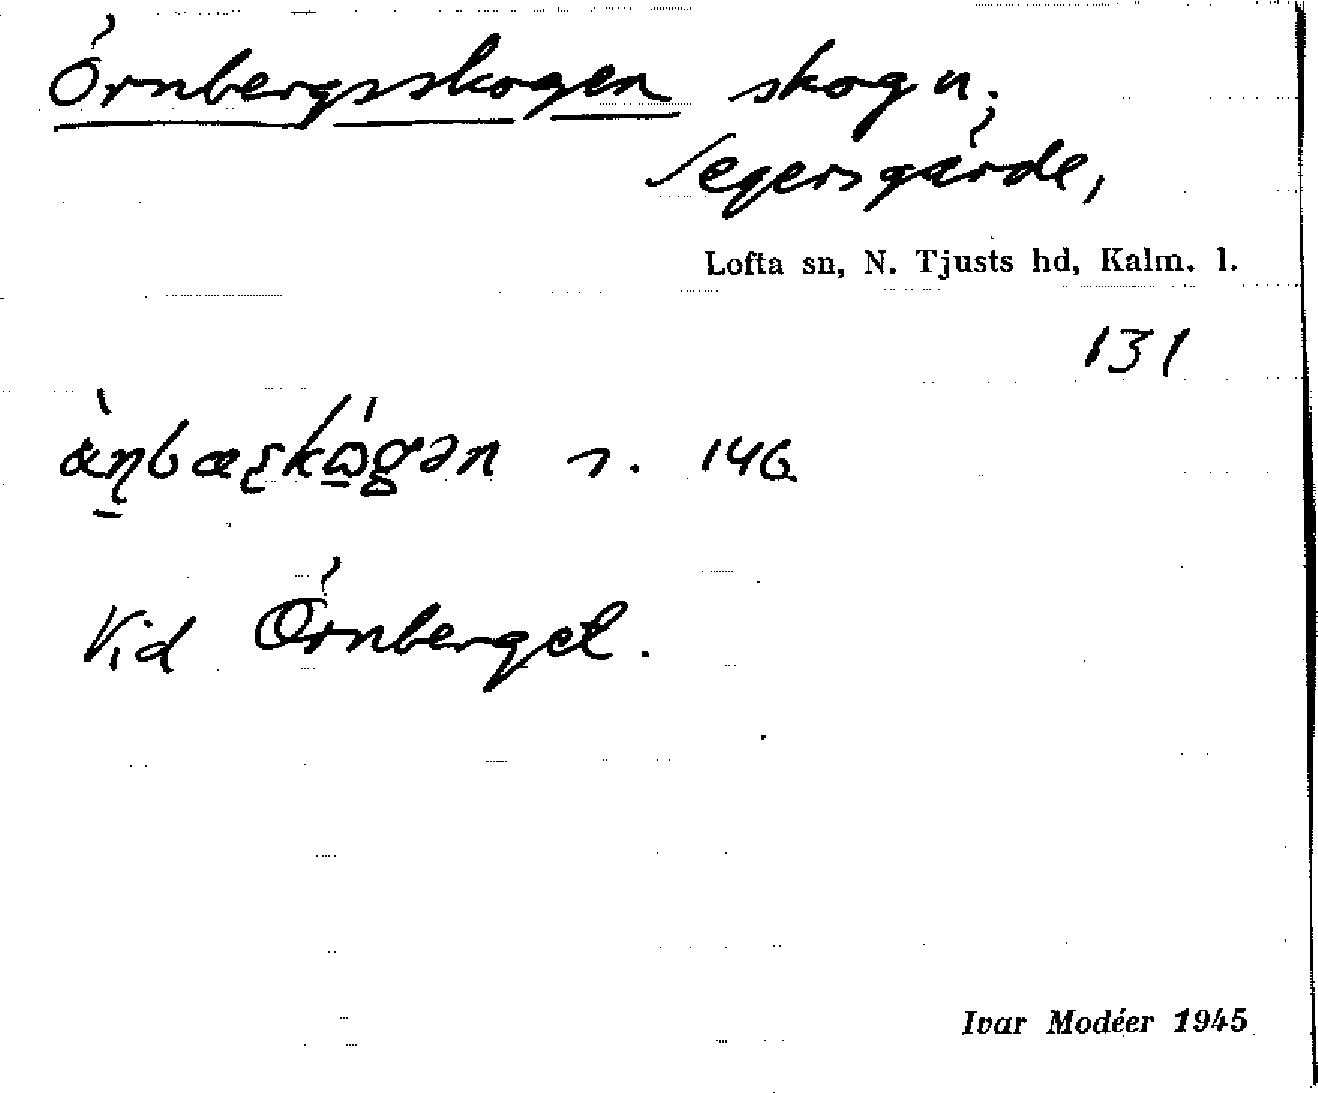 Örnbergsskogen skog u.
Segersgärde,
Lofta sn, N. Tjusts hd, Kalm. l.
131
s. 146
Vid Örnberget.
Ivar Modéer 1945